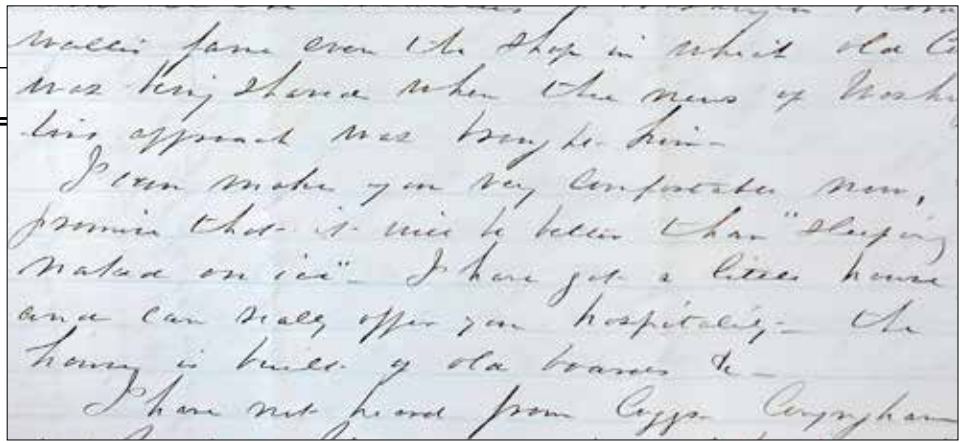 wallis fame even the shop in which old Co
was being shaved when the news of Washing
tons approach was brought him –
I can make you very comfortable now,
promise that it will be better than "sleeping
naked on ice" – I have got a little house
and can really offer you hospitality – the
house is built of old boards &c –
I have not heard from Conyngham